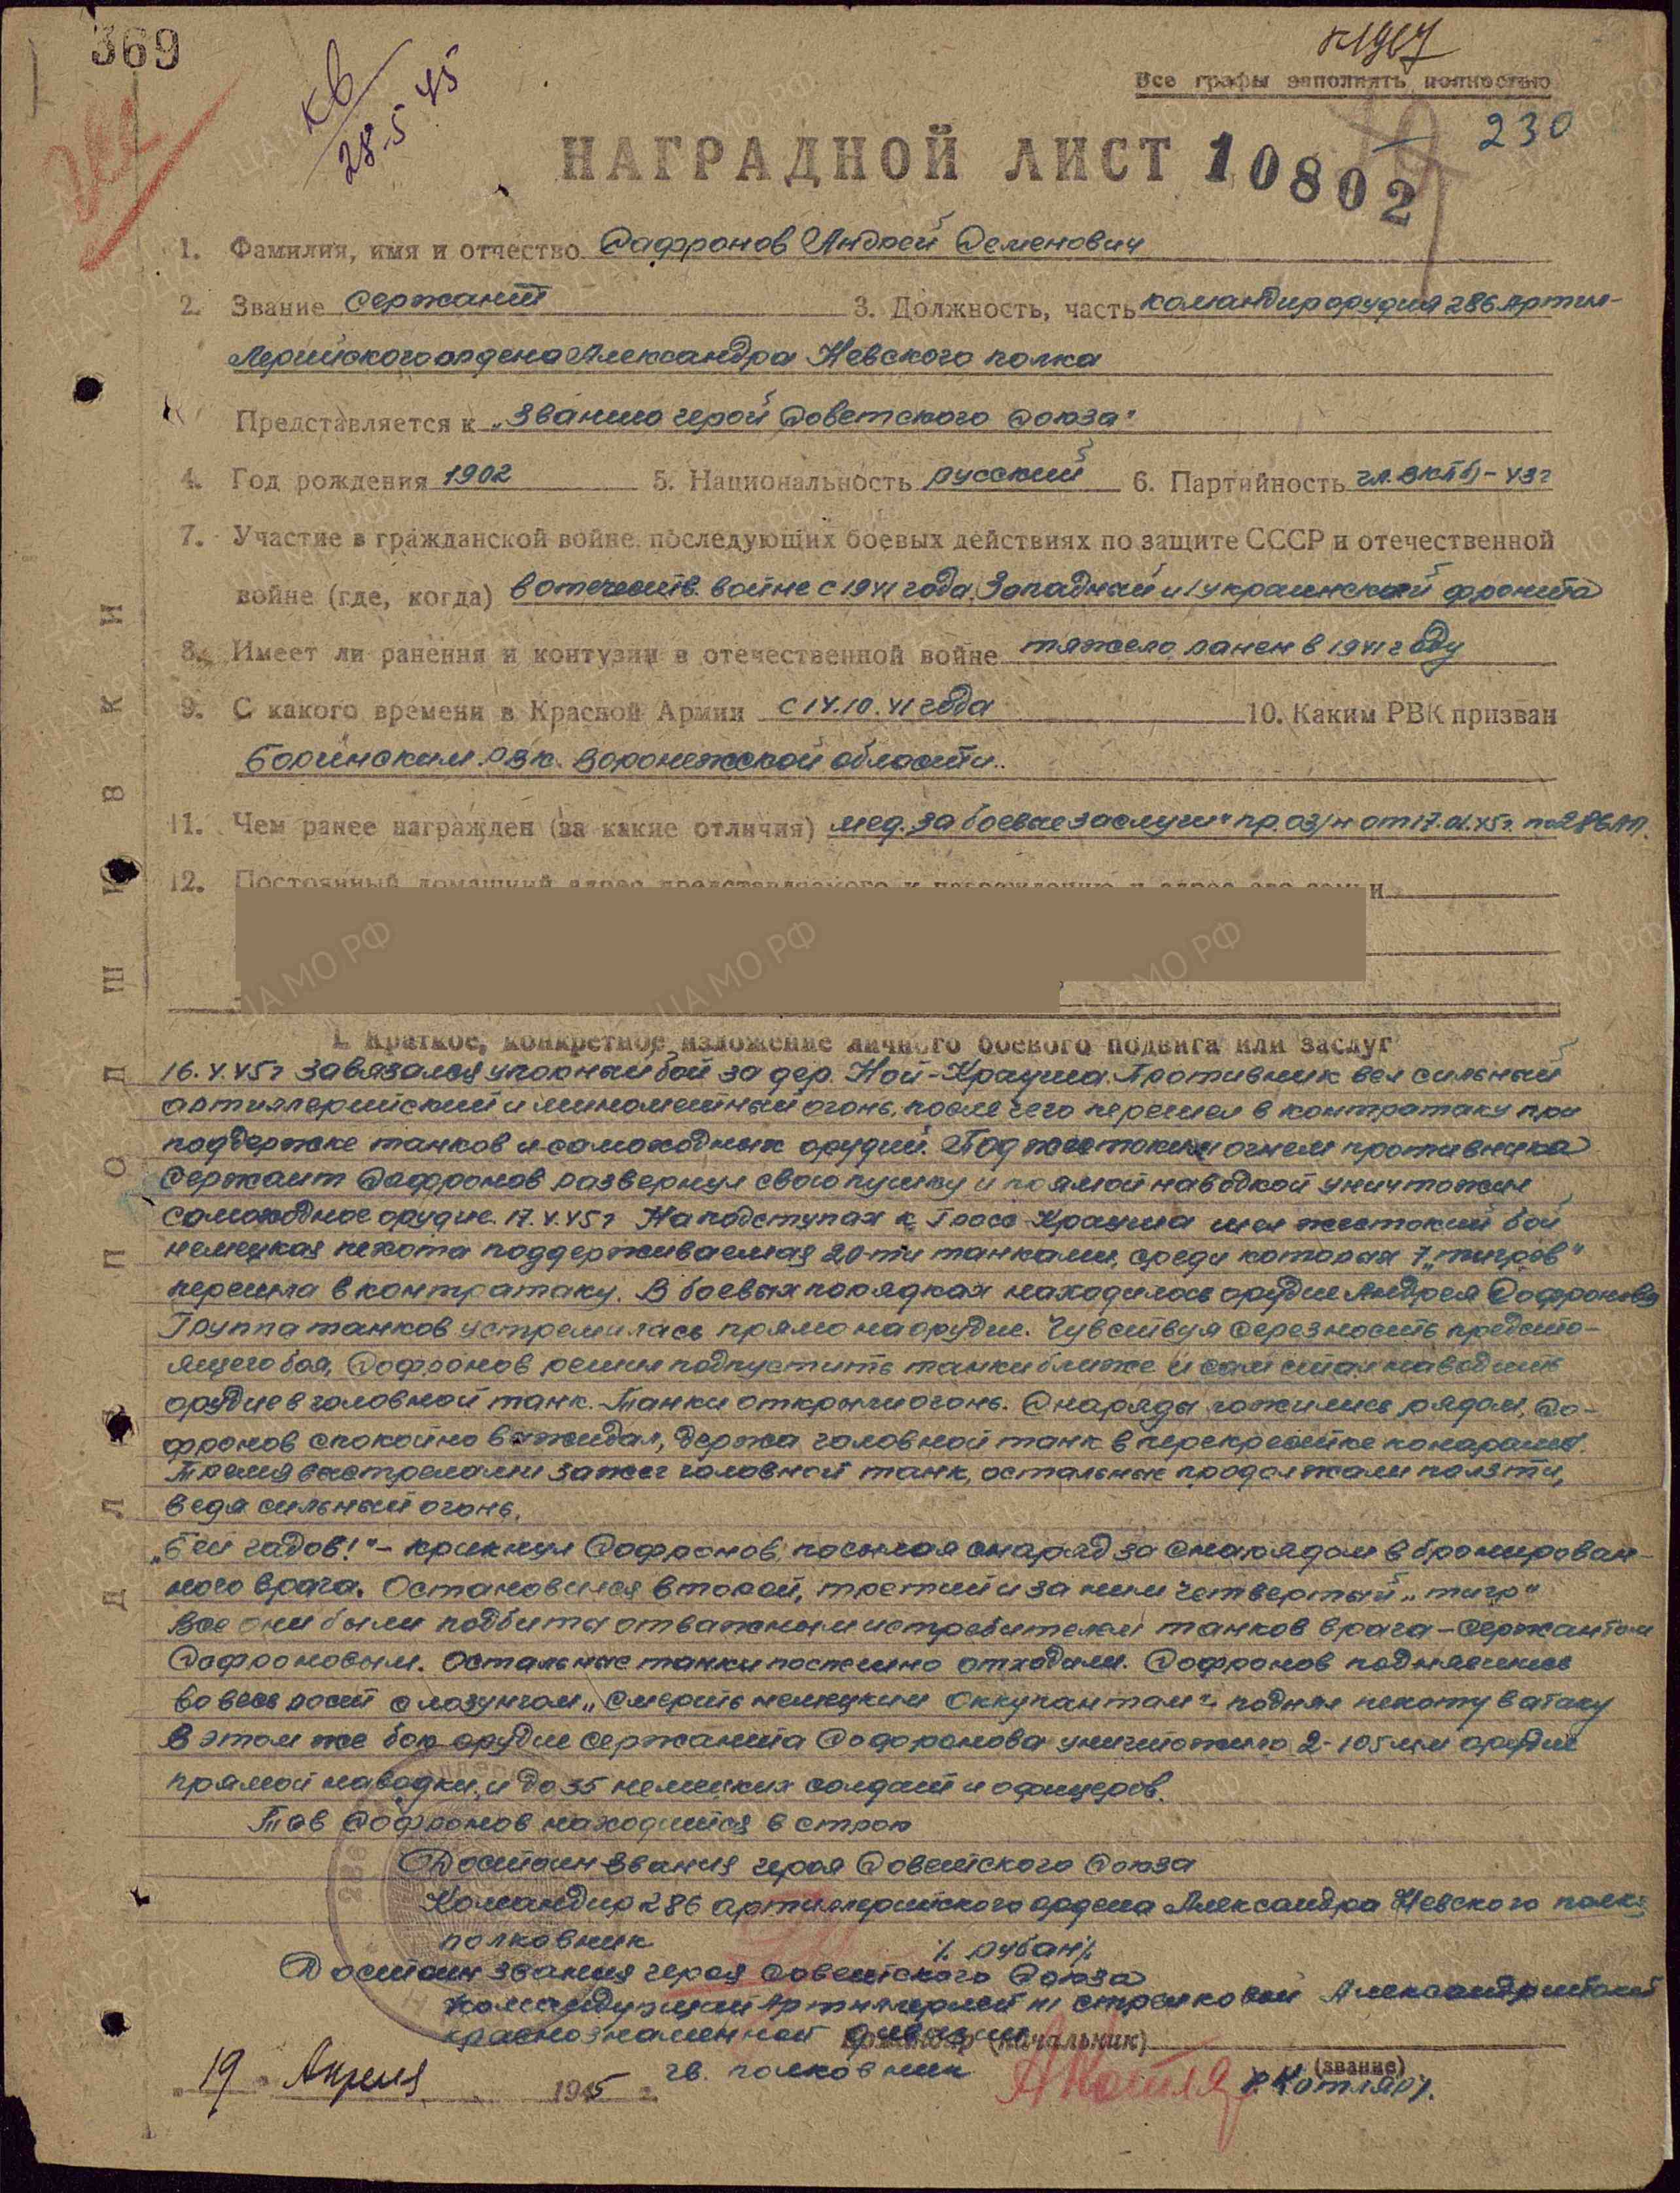 369
кв
28.5 45
Все графы заполнять полностью
230
НАГРАДНОЙ ЛИСТ 10802
1. Фамилия, имя и отчество Сафронов Андрей Семенович
2. Звание Сержант 3. Должность, часть командир орудия 286 Артил-
лерийского ордена Александра Невского полка
Представляется к „званию герой Советского Союза"
4. Год рождения 1902 5. Национальность русский 6. Партийность чл. ВКПб) - 43 г
7. Участие в гражданской войне последующих боевых действиях по защите СССР и отечественной
войне (где, когда) в отечеств. войне с 1941 года, Западный и 1 украинский фронта
8. Имеет ли ранения и контузии в отечественной войне тяжело ранен в 1941 году
9. С какого времени в Красной Армии с 14.10.41 года 10. Каким РВК призван
Боринским РВК. Воронежской области..
11. Чем ранее награжден (за какие отличия) мед. За боевые заслуги" пр. 03/н от 17.01.45г. по 286 АП.
12. Постоянный домашний адрес представляемого к награждению и адрес его семьи
I. Краткое, конкретное изложение личного боевого подвига или заслуг
16.4.45г завязался упорный бой за дер. Ной-Крауша. Противник вел сильный
артиллерийский и минометный огонь, после чего перешел в контратаку при
поддержке танков и самоходных орудий. Под жестоким огнем противника
Сержант Сафронов развернул свою пушку и прямой наводкой уничтожил
самоходное орудие. 17.4.45г На подступах к Гросс-Крауша шел жестокий бой
немецкая пехота поддерживаемая 20-ти танками, среди которых 7 „тигров"
перешла в контратаку. В боевых порядках находилось орудие Андрея Софронова
Группа танков устремилась прямо на орудие. Чувствуя серезность предсто-
ящего боя, Софронов решил подпустить танки ближе и сам стал наводить
орудие в головной танк. Танки открыли огонь. Снаряды ложились рядом, Со-
фронов спокойно выжидал, держа головной танк в перекрестке панорамы.
Тремя выстрелами зажег головной танк, остальные продолжали ползти,
ведя сильный огонь.
„Бей гадов!" - крикнул Софронов, посылая снаряд за снарядом в бронирован-
ного врага. Остановился второй, третий и за ним четвертый „тигр"
Все они были подбиты отважным истребителем танков врага - Сержантом
Софроновым. Остальные танки поспешно отходили. Софронов поднявшись
во весь рост с лозунгом „Смерть немецким оккупантам", поднял пехоту в атаку
В этом же бою орудие сержанта Софронова уничтожило 2-105 мм орудие
прямой наводки, и до 35 немецких солдат и офицеров.
Тов Софронов находится в строю
Достоин звания героя Советского Союза
Командир 286 артиллерийского ордена Александра Невского полка
полковник /. Рубан/.
Достоин звания героя Советского Союза
Командующий Артиллерией 111 стрелковой Александрийской
краснознаменной дивизии
Командир (начальник)
гв. полковник /. Котляр/.
(звание)
19 Апреля 1945 г.
ДЛЯ ПОДШИВКИ